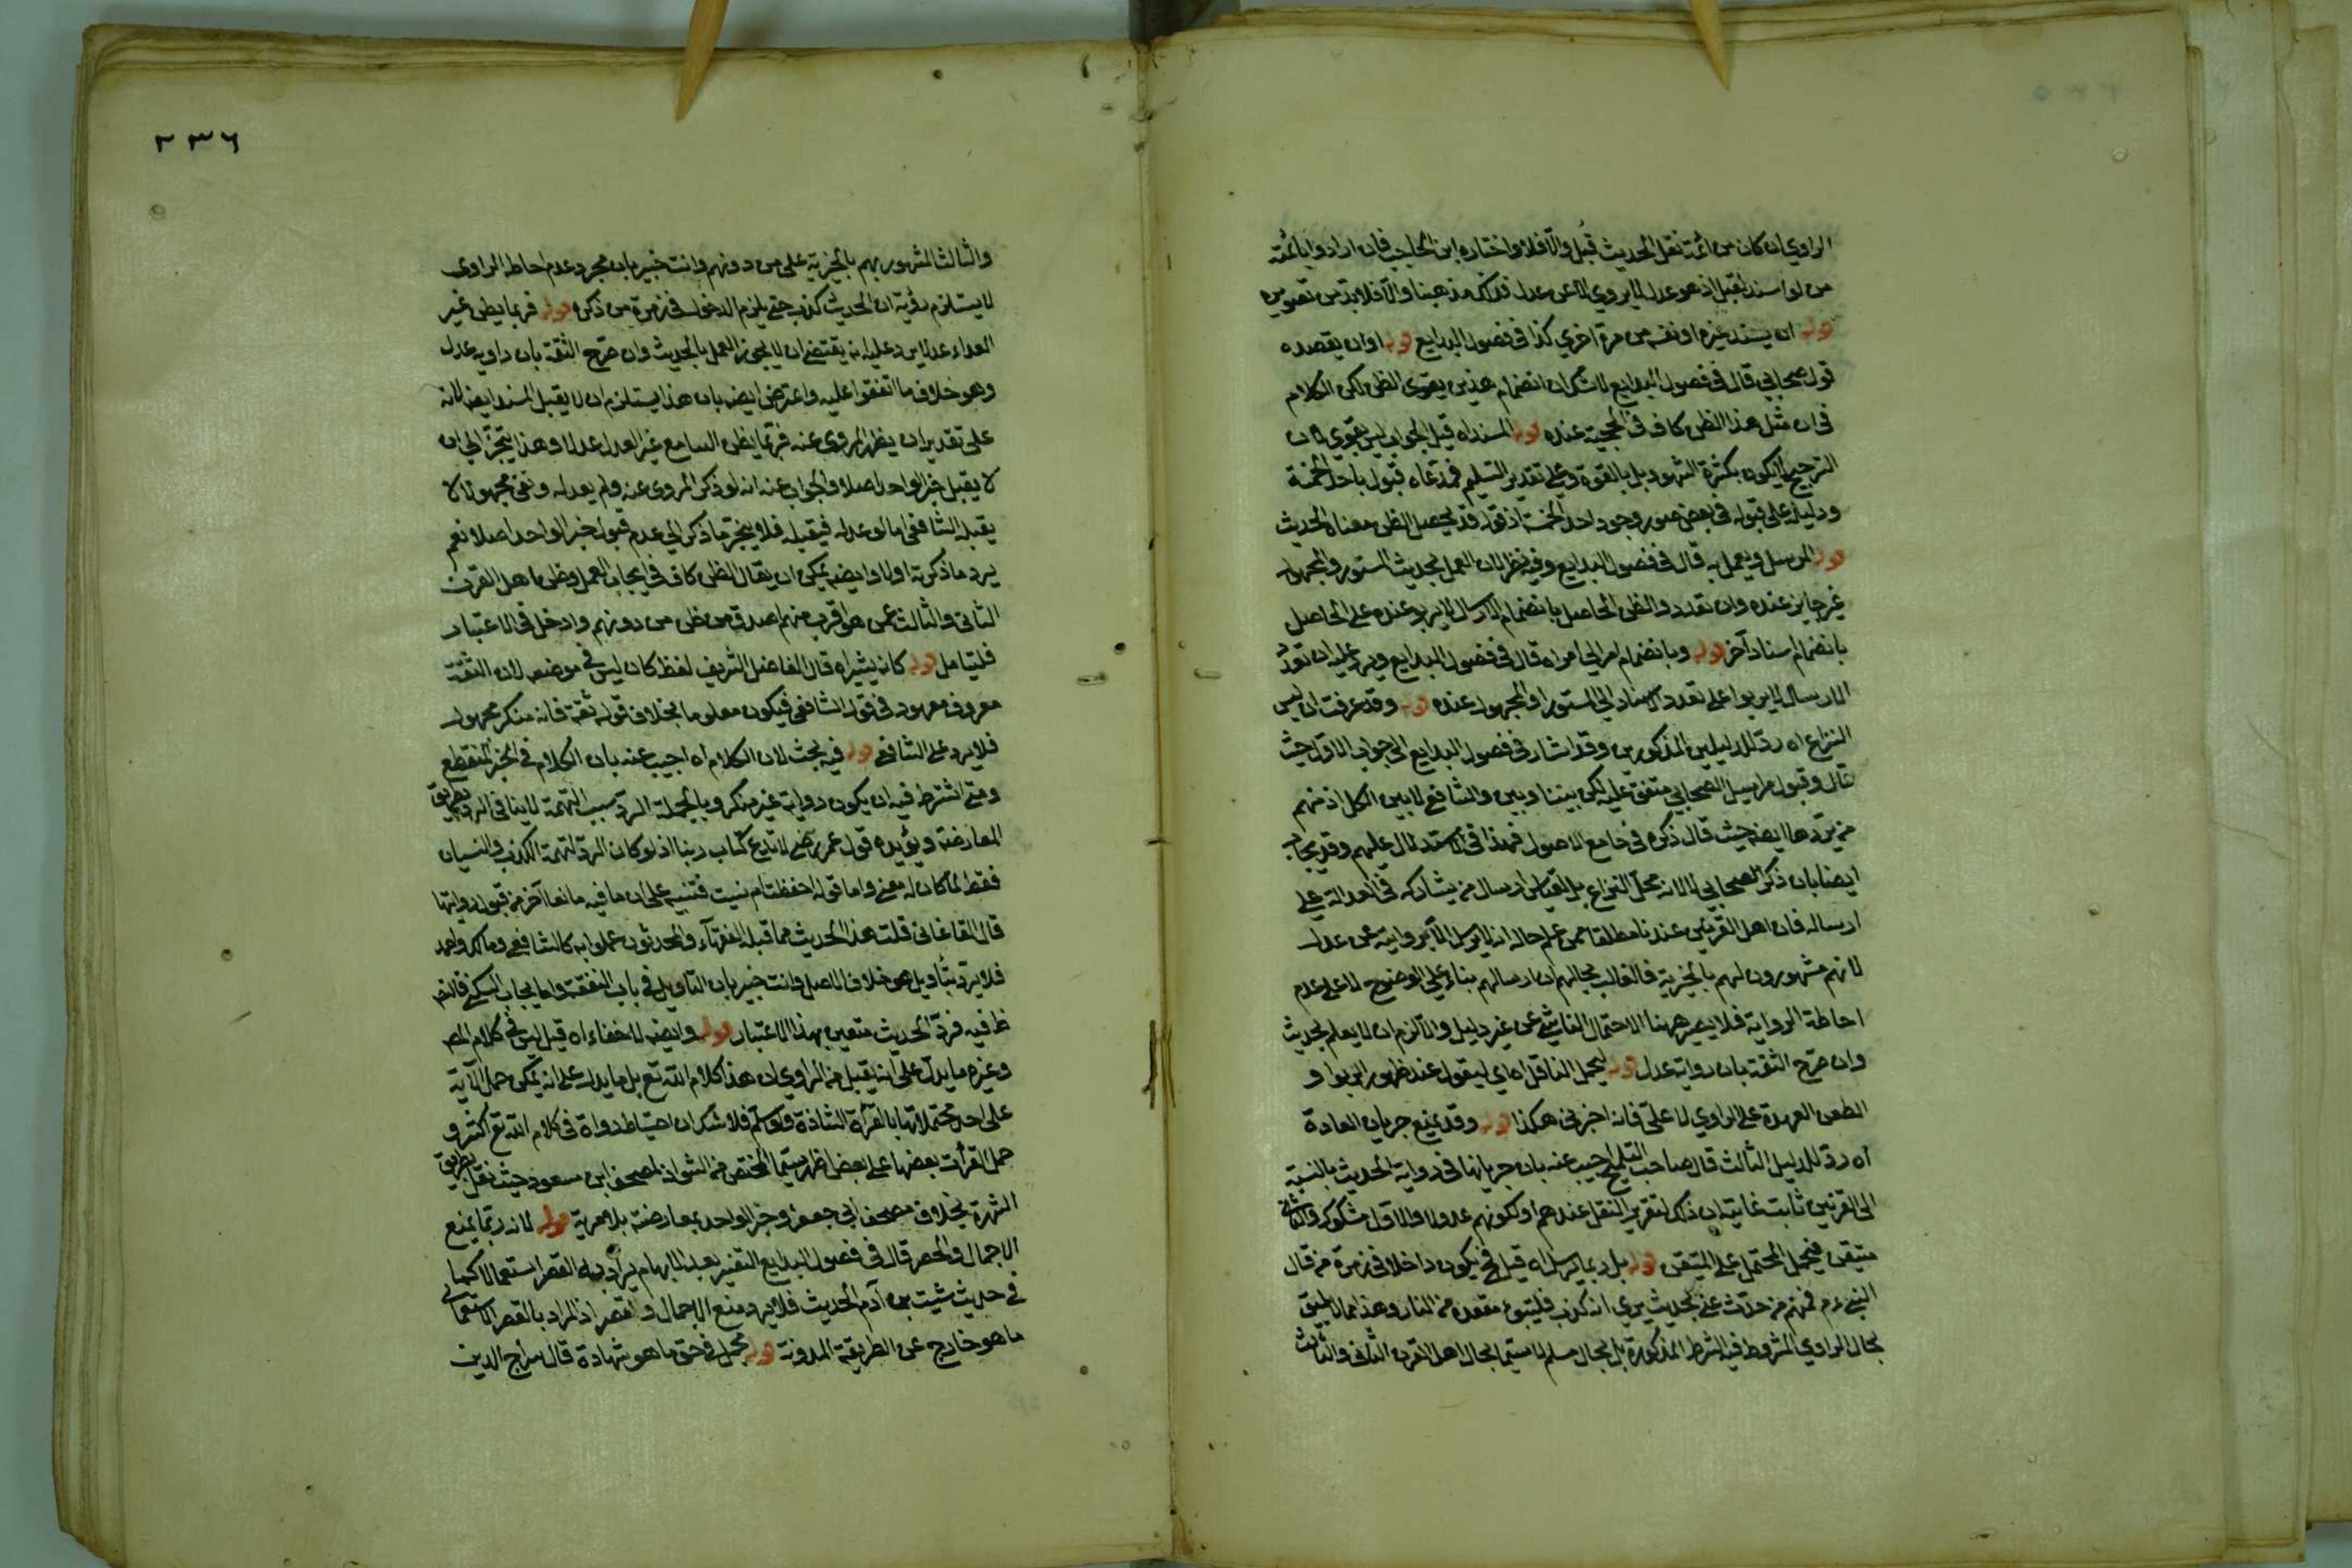 الراوي ان كان من ائمة نقل الحديث قُبل والّا فلا واختاره ابن الحاجب فان ارادوا بائمته
من لو اسند لقبل اذ هو عدل لا يروي الا عن عدل فذلك مذهبنا والّا فلا بد من تصويره
قوله ان يسند غيره او نفسه مرة اخرى كذا في فصول البدايع قوله او ان يعضده
قول صحابي قال في فصول البدايع لا شك ان انضمام هذين يقوى الظن لكن الكلام
في ان مثل هذا الظن كاف في الحجية عنده قوله المسند اه قيل الجواب ليس بقوي لان
الترجيح لا يكون بكثرة الشهود بل بالقوة وعلى تقدير التسليم فمدعاه قبوله باحد الخمسة
ودليله على قبوله في بعض صور وجود احد الخمسة اذ قوله قد يحصل الظن معناه الحديث
قوله المرسل ويعمل به قال في فصول البدايع وفيه نظر لان العمل بحديث المستور والمجهول
غير جايز عنده وان تعدد والظن الحاصل بانضمام الارسال لا يزيد عنده على الحاصل
بانضمام اسناد آخر قوله وبانضمام امر الى امر اه قال في فصول البدايع ويرد عليه ان تعدد
الارسال لا يربوا على تعدد الاسناد الى المستور او المجهول عنده قوله وقد عرفت ان ليس
النزاع اه ردّ للدليلين المذكورين وقد اشار في فصول البدايع الى جواب الاول حيث
قال وقبول مراسيل الصحابي متفق عليه لكن بيننا وبين والشافعي لا بين الكل اذ منهم
من يردّها ايضا حيث قال ذكره في جامع الاصول فهذا في الاستدلال عليهم وقد يجاب
ايضا بان ذكر الصحابي لا لانه محل النزاع بل لقياس ارسال من يشاركه في العدالة على
ارساله فان اهل القرنين عندنا مطلقا ممن علم حاله انه لا يرسل الا بروايته عن عدل
لانهم مشهورون لهم بالخيرية فالغالب بحالهم ان ارسالهم بناء على الوضوح لا على عدم
احاطة الرواية فلا يصير ههنا الاحتمال الناشي عن غير دليل والا لزم ان لا يعلم بحديث
وان صرّح الثقة بان رواته عدل قوله ليحمل الناقل اه اي ليقول عند ظهور الربوا و
الطعن العهدة على الراوي لا عليّ فانه اخبرني هكذا قوله وقد يمنع جريان العادة
اه ردّ للدليل الثالث قال صاحب التلويح اجيب عنه بان جريانها في رواية الحديث بالنسبة
الى القرنين ثابت غايته ان ذلك لتقرير النقل عندهم او لكونهم عدولا والاول مشكوك والثاني
متيقن فيحمل المحتمل على المتيقن قوله بل ربما يرسل اه قيل فح يكون داخلا في زمرة من قال
النبي ءم فيهم من حدّث عني بحديث يرى انه كذب فليتبوء مقعده من النار وهذا مما لا يليق
بحال الراوي المشروط فيه الشرط المذكورة بل بحال مسلم لا سيما بحال اهل القرن الثاني والثالث
٢٣٦
والثالث المشهور بهم بالخيرية على من دونهم وانت خبير بان مجرد عدم احاطه الراوي
لا يستلزم رؤية ان الحديث كذب حتى يلزم الدخول في زمرة من ذكره قوله فربما يظن غير
العدل عدلا يرد عليه انه يقتضي ان لا يجوز العمل بالحديث وان صرّح الثقة بان راويه عدل
وهو خلاف ما اتفقوا عليه واعترض ايضه بان هذا يستلزم ان لا يقبل المسند ايضه لانه
على تقدير ان يظهر المروى عنه فربّما يظن السامع غير العدل عدلا وهذا ينجرّ الى ان
لا يقبل خبر الواحد اصلا والجواب عنه انه لو ذكر المروى عنه ولم يعدله وبقى مجهولا لا
يقبله الشافعي اما لو عدله فيقبله فلا ينجرّ ما ذكر الى عدم قبول خبر الواحد اصلا نعم
يرد ما ذكرته اولا وايضه يمكن ان يقال الظن كاف في ايجاب العمل وظن اهل القرن
الثاني والثالث عمن هو اقرب منهم اصدق من ظن من دونهم وادخل في الاعتبار
فليتامل قوله كانه يشير اه قال الفاضل الشريف لفظ كان ليس في موضعه لان الثقة
معروف معهود في قول الشافعي فيكون معلوما بخلاف قوله ثقة فانه منكر مجهول
فلا يرد على الشافعي قوله فيه بحث لان الكلام اه اجيب عنه بان الكلام في الخبر المنقطع
ومتى اشترط فيه ان يكون رواية غير منكر وبالجملة الردّ بسبب التهمة لا ينافي الرد بطريق
المعارضة ويؤيده قول عمر رضي لا ندع كتاب ربنا اذ لو كان الردّ لتهمة الكذب والنسيان
فقط لما كان له معنى واما قوله احفظت ام نسيت فتنبيه على ان ما فيه مانعا آخر من قبول روايتها
قال القاغاني قلت هذا الحديث مما قبله الفقهآء والمحدثون عملوا به كالشافعي ومالك واحمد
فلا يرد بتأويل هو خلاف الاصل وانت خبير بان التاويل في باب النفقة واما ايجاب السكنى فالنص
ظ فيه فردّ الحديث متعين بهذا الاعتبار قوله وايضه لا خفاء اه قيل ليس في كلام المص
وغيره ما يدل على انه يقبل من الراوي ان هذا كلام الله تع بل ما يدل على انه يمكن حمل الآية
على احد محتملاتها بالقرآة الشاذة ولو سلم فلا شك ان احتياط رواة في كلام الله تع اكثر و
حمل القرأت بعضها على بعض اظهر سيما المختص من الشواذ لمصحف ابن مسعود حيث نقل بطريق
الشهرة بخلاف مصحف ابي جعفر وخبر الواحد بمعارضته بلا مرية قوله لانه ربّما يمنع
الاجمال والحصر قال في فصول البدايع التفسير بعد الابهام يراد به القصر استعمالا كما
في حديث شيت بن آدم الحديث فلا يرد منع الاجمال والقصر اذ المراد بالقصر الاستعمالي
ما هو خارج عن الطريقة المدونة قوله محمل في حق ما هو شهادة قال سراج الدين